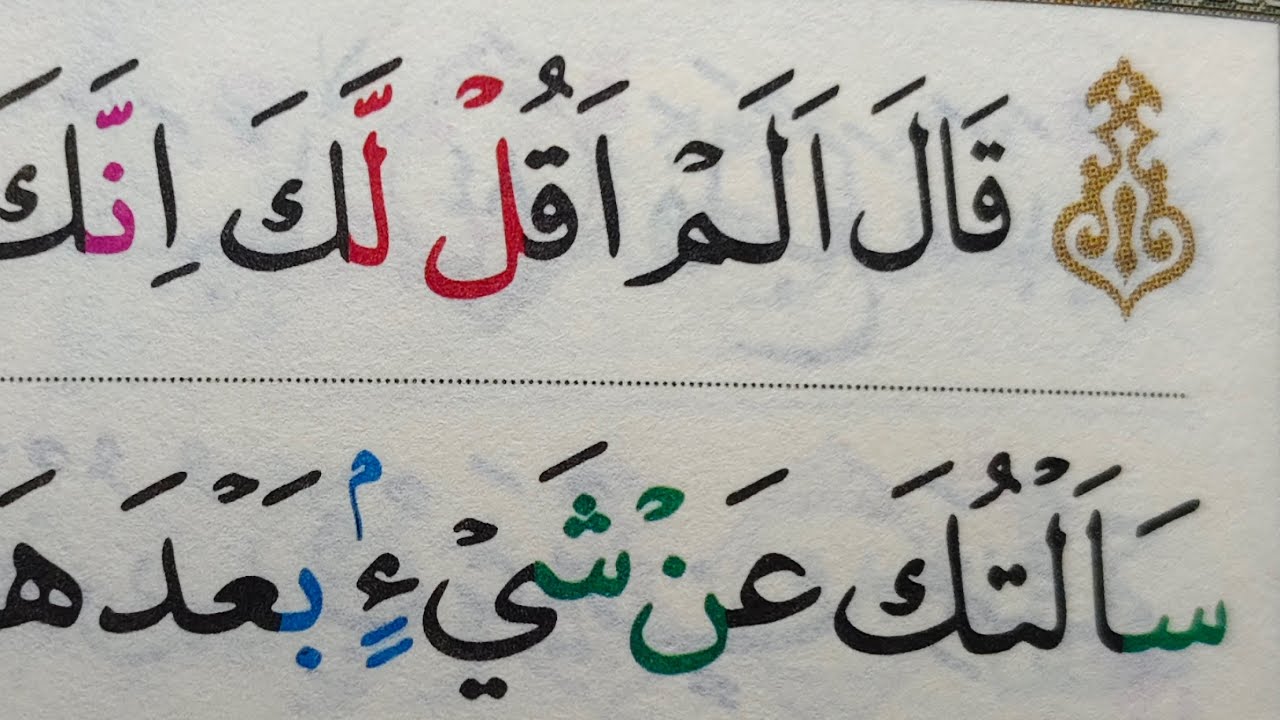 قَالَ اَلَمْ اَقُلْ لَّكَ اِنَّكَ
سَاَلْتُكَ عَنْ شَيْءٍۭ بَعْدَهَ